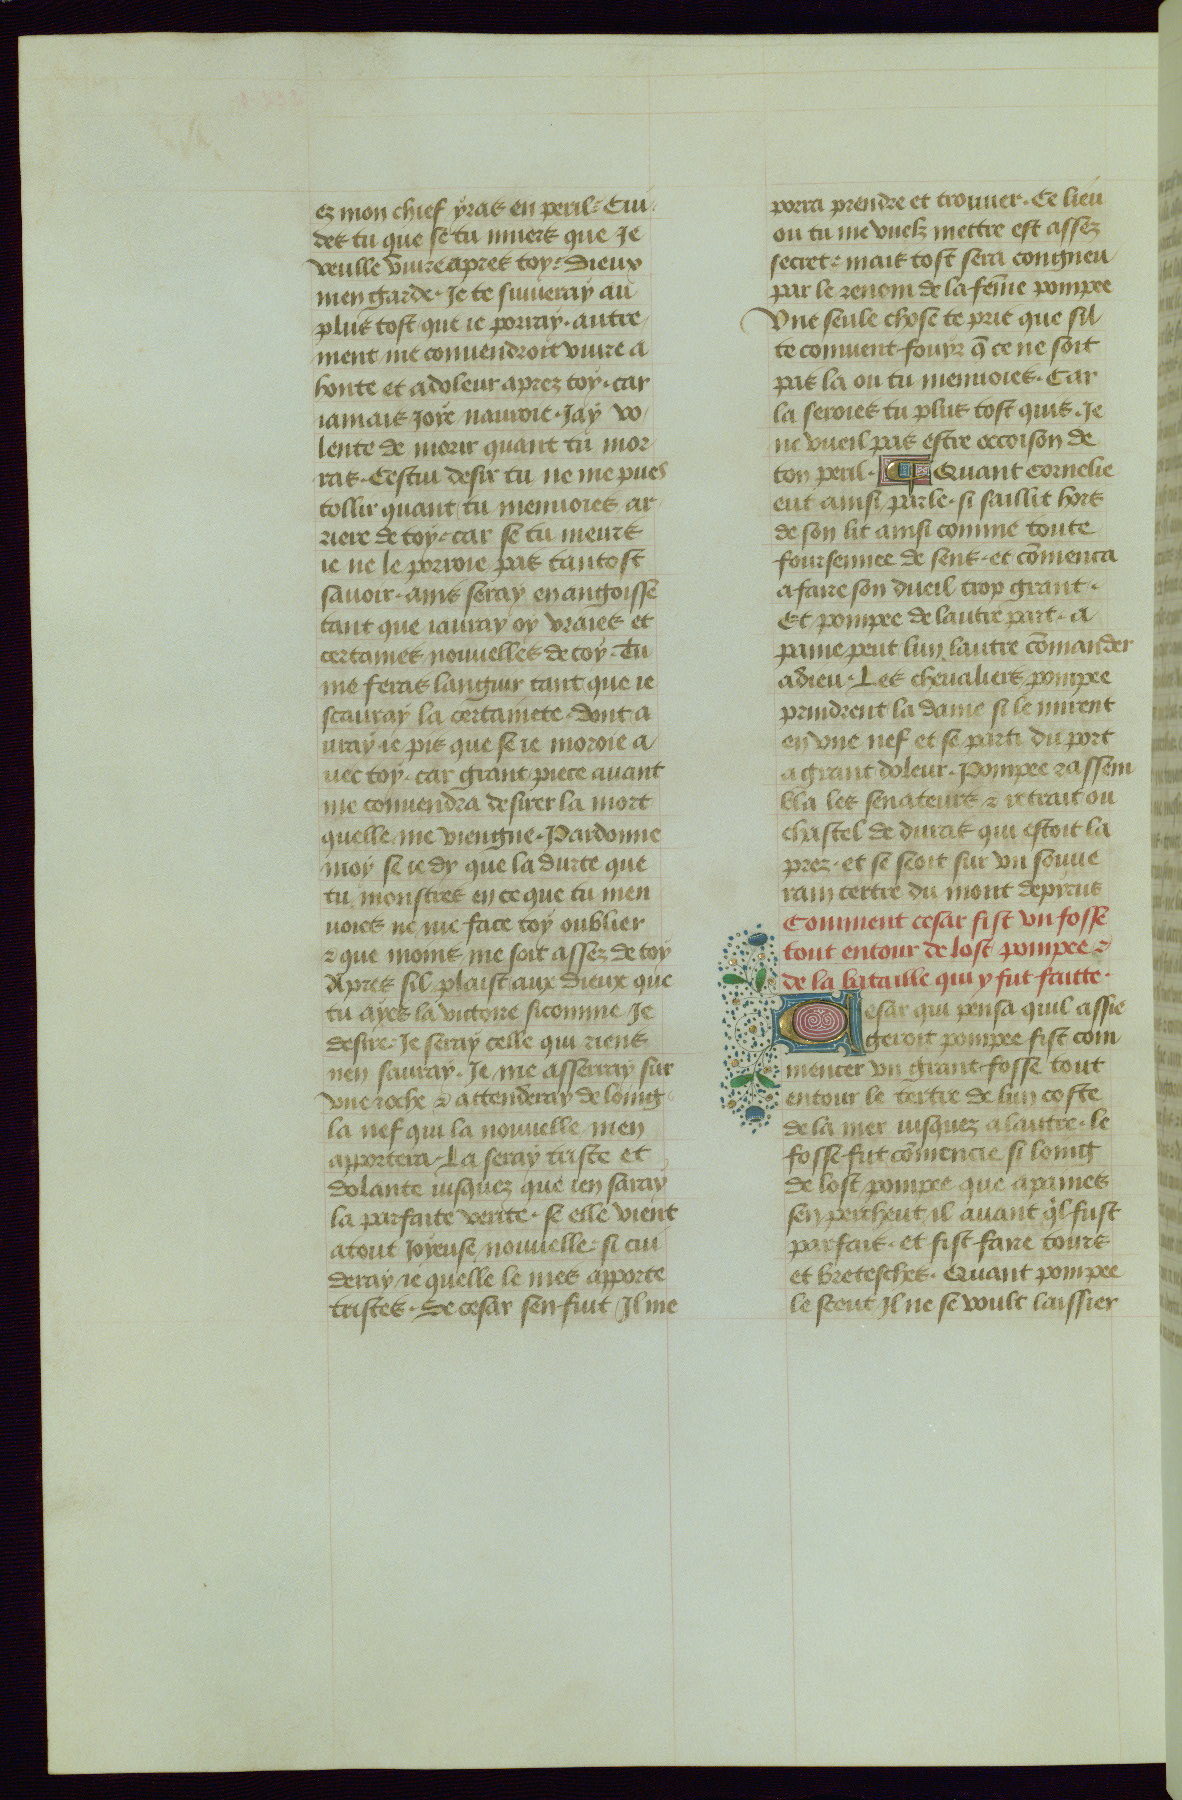 ez mon chief yras en peril· Cui
des tu que se tu muers que Je
veulle vivre apres toy· Dieux
men garde· Je te suiueray au
plus tost que ie porray· autre
ment me conuendroit viure a
honte et a doleur aprez toy· car
iamais Joye nauroie· Jay vo
lente de morir quant tu mor
ras· Cestui desir tu ne me pues
tollir quant tu menuoies ar
riere de toy· car se tu meurs
ie ne le porroie pas tantost
sauoir· ains seray en angoisse
tant que iauray oy vraies et
certaines nouuelles de toy Tu
me feras languir tant que ie
scauray la certainete· dont a
uray ie pis que se ie moroie a
uec toy· car grant piece auant
me conuendra desirer la mort
quelle me viengne· Pardonne
moy se ie dy que la durte que
tu monstres en ce que tu men
uoies ne me face toy oublier
⁊ que moins me soit assez de toy
Apres sil plaist aux dieux que
tu ayes la victoire sicomme Je
desire· Je seray celle qui riens
nen sauray· Je me asserray sur
vne roche ⁊ attenderay de loing
la nef qui la nouuelle men
apportera· La seray triste et
dolante iusquez que ien saray
la parfaite verite· se elle vient
atout Joyeuse nouuelle· si cui
deray ie quelle le mes apporte
tristes· Se cesar sen fuit Il me
porra prendre et trouuer· Ce lieu
ou tu me vuelz mettre est assez
secret· mais tost sera congneu
par le renom de la fem̄e pompee
Vne seule chose te prie que sil
te conuient fouyr q̄ ce ne soit
pas la ou tu menuoies· Car
la seroies tu plus tost quis· Je
ne vueil pas estre occoison de
ton peril· Quant Cornelie
eut ainsi parle· si saillit hors
de son lit ainsi comme toute
foursennee de sens· et com̄enca
a faire son dueil trop grant·
Et pompee de lautre part· a
paine peut lun lautre com̄ander
adieu· Les cheualiers pompee
prindrent la dame si le mirent
en vne nef et se parti du port
a grant doleur· Pompee rassem
bla les senateurs ⁊ retrait ou
chastel de duras qui estoit la
prez· et se seoit sur vn souue
rain tertre du mont depirus
Comment cesar fist vn fosse
tout entour de lost pompee ⁊
de la bataille qui y fut faitte·
Cesar qui pensa quil assie
geroit pompee fist com
mencer vn grant fosse tout
entour le tertre de lun coste
de la mer iusquez a lautre· le
fosse fut com̄encie si loing
de lost pompee que apaines
sen percheut il auant q̓l fust
parfait· et fist faire tours
et bretesches· Quant pompee
le sceut Il ne se voult laissier